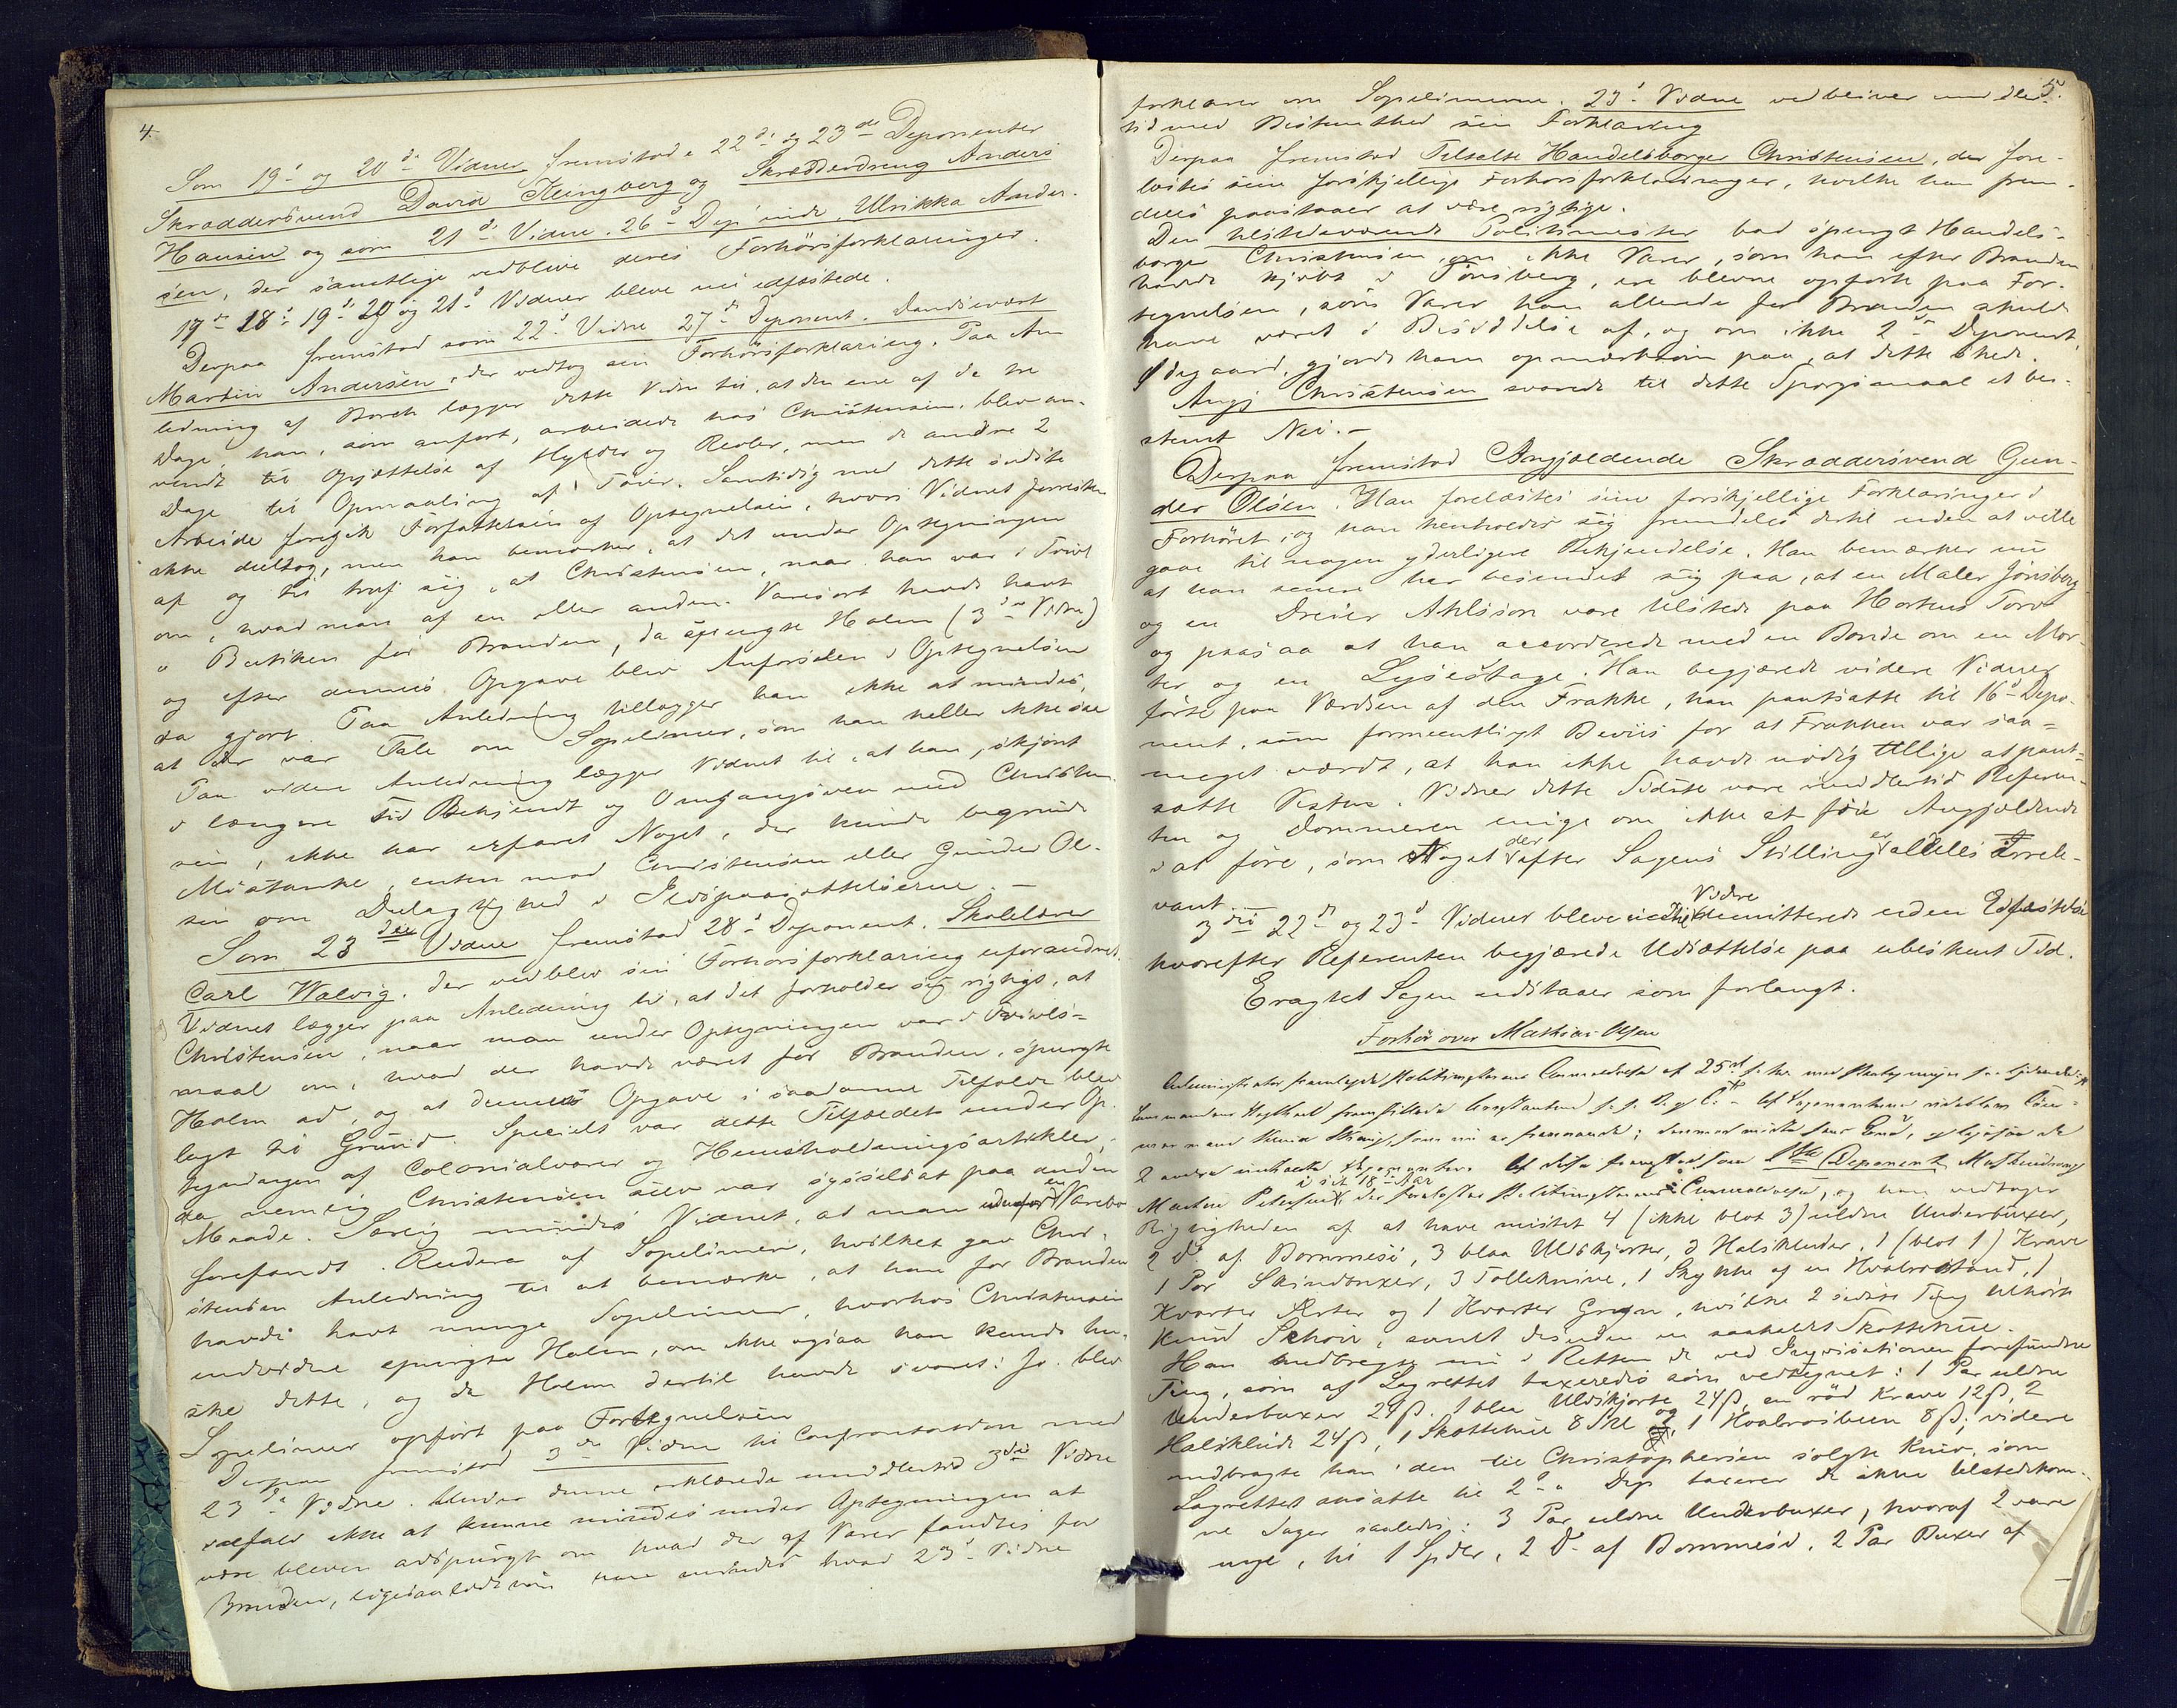 4.
Som 19d og 20de Vidner fremstod 22de og 23de Deponenter
Skræddersvend David Klingberg og Skrædderdreng Anders
Hansen og som 21de Vidne 26d Dep inde, Ulrikka Ander-
sen, der samtlige vedbleve deres Forhørsforklaringer.
17de 18d 19d 20 og 21d Vidner bleve nu edfæstede.
Derpaa fremstod som 22d Vidne 27de Deponent, Dandsevært
Martin Andersen, der vedtog sin Forhørsforklaring. Paa An
ledning af Borch lægger dette Vidne til, at den ene af de tre
Dage han, som anført, arbeidede hos Christensen, blev an-
vendt til Opsættelse af Hylder og Reoler, men de andre 2
Dage til Opmaaling af Tøier. Samtidig med dette sidste
Arbeide foregik Forfattelsen af Optegnelsen, hvori Vidnet forresten
ikke deeltog, men han bemærker, at det under Optegningen
af og til traf sig, at Christensen, naar han var i Tvivl
om, hvad man af en eller anden Varesort havde havt
i Butiken før Branden, da spurgte Holm (3die Vidne)
og efter dennes Opgave blev Anførselen i Optegnelsen
da gjort. Paa Anledning tillægger han ikke at mindes,
at der var Tale om Sopelimer, som han heller ikke saae
Paa videre Anledning lægger Vidnet til, at han, skjønt
i længere Tid Bekjendt og Omgangsven med Christen-
sen, ikke har erfaret Noget, der kunde begrunde
Mistanke, enten mod Christensen eller Gunder Ol-
sen om Delagtighed i Ildspaasættelserne. –
Som 23die Vidne fremstod 28d Deponent, Skolelærer
Carl Walvig, der vedblev sin Forhørsforklaring uforandret.
Vidnet lægger paa Anledning til, at det forholder sig rigtigt, at
Christensen, naar man under Optegningen var i Tvivls-
maal om, hvad der havde været før Branden, spurgte
Holm ad, og at dennes Opgave i saadanne Tilfælde blev
lagt til Grund. Specielt var dette Tilfældet under Op-
tegningen af Colonialvarer og Huusholdningsartikler,
da nemlig Christensen selv var sysselsat paa anden
Maade. Særlig mindes Vidnet, at man udenfor en Varebo
forefandt Rudera af Sopelimer, hvilket gav Chri-
stensen Anledning til at bemærke, at han før Branden
havde havt mange Sopelimer, hvorhos Christensen
endvidere spurgte Holm, om ikke ogsaa han kunde hu-
ske dette, og da Holm dertil havde svaret: Ja, blev
Sopelimer opført paa Fortegnelsen
Derpaa fremstod 3die Vidne til Confrontation med
23de Vidne. Under denne erklærede imidlertid 3die Vidne
ialfald ikke at kunne mindes under Optegningen at
være bleven adspurgt om hvad der af Varer fandtes før
Branden, ligesaalidt som han mindes hvad 23d Vidne
5.
forklarer om Sopelimerne. 23d Vidne vedbliver imidler-
tid med Bestemthed sin Forklaring
Derpaa fremstod Tiltalte Handelsborger Christensen, der fore-
læstes sine forskjellige Forhørsforklaringer, hvilke han frem-
deles paastaaer at være rigtige.
Den tilstedeværende Politimester bad spurgt Handels-
borger Christensen, om ikke Varer, som han efter Branden
havde kjøbt i Tønsberg, ere blevne opførte paa For-
tegnelsen, som Varer han allerede før Branden skulde
have været i Besiddelse af, og om ikke 2d Deponent,
Ødegaard, gjorde ham opmærksom paa, at dette skede.
Angj Christensen svarede til dette Spørgsmaal et be-
stemt Nei. –
Derpaa fremstod Angjældende Skræddersvend Gun-
der Olsen. Han forelæstes sine forskjellige Forklaringer i
Forhøret, og han henholder sig fremdeles dertil uden at ville
gaae til nogen yderligere Bekjendelse. Han bemærker nu
at han senere har besindet sig paa, at en Maler Jønsberg
og en Dreier Ahlsson vare tilstede paa Hortens Torv
og paasaa at han accorderede med en Bonde om en Mor-
ter og en Lysestage. Han begjærede videre Vidner
førte paa Værdien af den Frakke, han pantsatte til 16d Depo-
nent, som formeentligt Beviis for at Frakken var saa-
meget værdt, at han ikke havde nødig tillige at pant-
satte Vesten. Vidner dette Sidste vare imidlertid Referen-
ten og Dommeren enige om ikke at føie Angjældende
i at føre, som Noget der efter Sagens Stilling er aldeles Irrele-
vant.
3die 22de og 23d Vidner bleve videre demitterede uden Edfæstelse
hvorefter Referenten begjærede Udsættelse paa ubestemt Tid.
Eragtet Sagen udstaaer som forlangt.
Forhør over Mathias Olsen
Administrator fremlagde Politimesterens Anmeldelse af 25de
2 andre indkaldte Deponenter. Af disse fremstod som 1ste Deponent Matrosdreng
Martin Petersen i sit 18de Aar, der forelæstes Politimesterens Anmeldelse, og han vedtager
Rigtigheden af at have mistet 4 (ikke blot 3) uldne Underbuxer,
2 Do af Bommesi, 3 blaa Uldskjorter, 3 Halsklude, 1 (blot 1) Krave
1 Par Skindbuxer, 3 Tolleknive, 1 Stykke af en Hvalrostand, 1
Kvarter Ærter og 1 Kvarter Gryn, hvilke 2 sidste Ting tilhørte
Knud Schou, samt desuden en saakaldt Skottehue.
Han medbragte nu i Retten de ved Inqvisitionen forefundne
Ting, som af Lagrettet taxeredes som vedtegnet: 1 Par uldne
Underbuxer 24 ß. 1 blaa Uldskjorte 24 ß, en rød Krave 12 ß, 2
Halsklude 24 ß, 1 Skottehue 8 Skl og 1 Hvalrosbeen 8 ß; videre
medbragte han den til Christophersen solgte Kniv, som
Lagrettet ansatte til 2 ß. Dep taxerer de ikke tilstedekom-
ne Sager saaledes: 3 Par uldne Underbuxer, hvoraf 2 vare
nye, til 1 Spdlr, 2 Do af Bommesi, 2 Par Buxer af